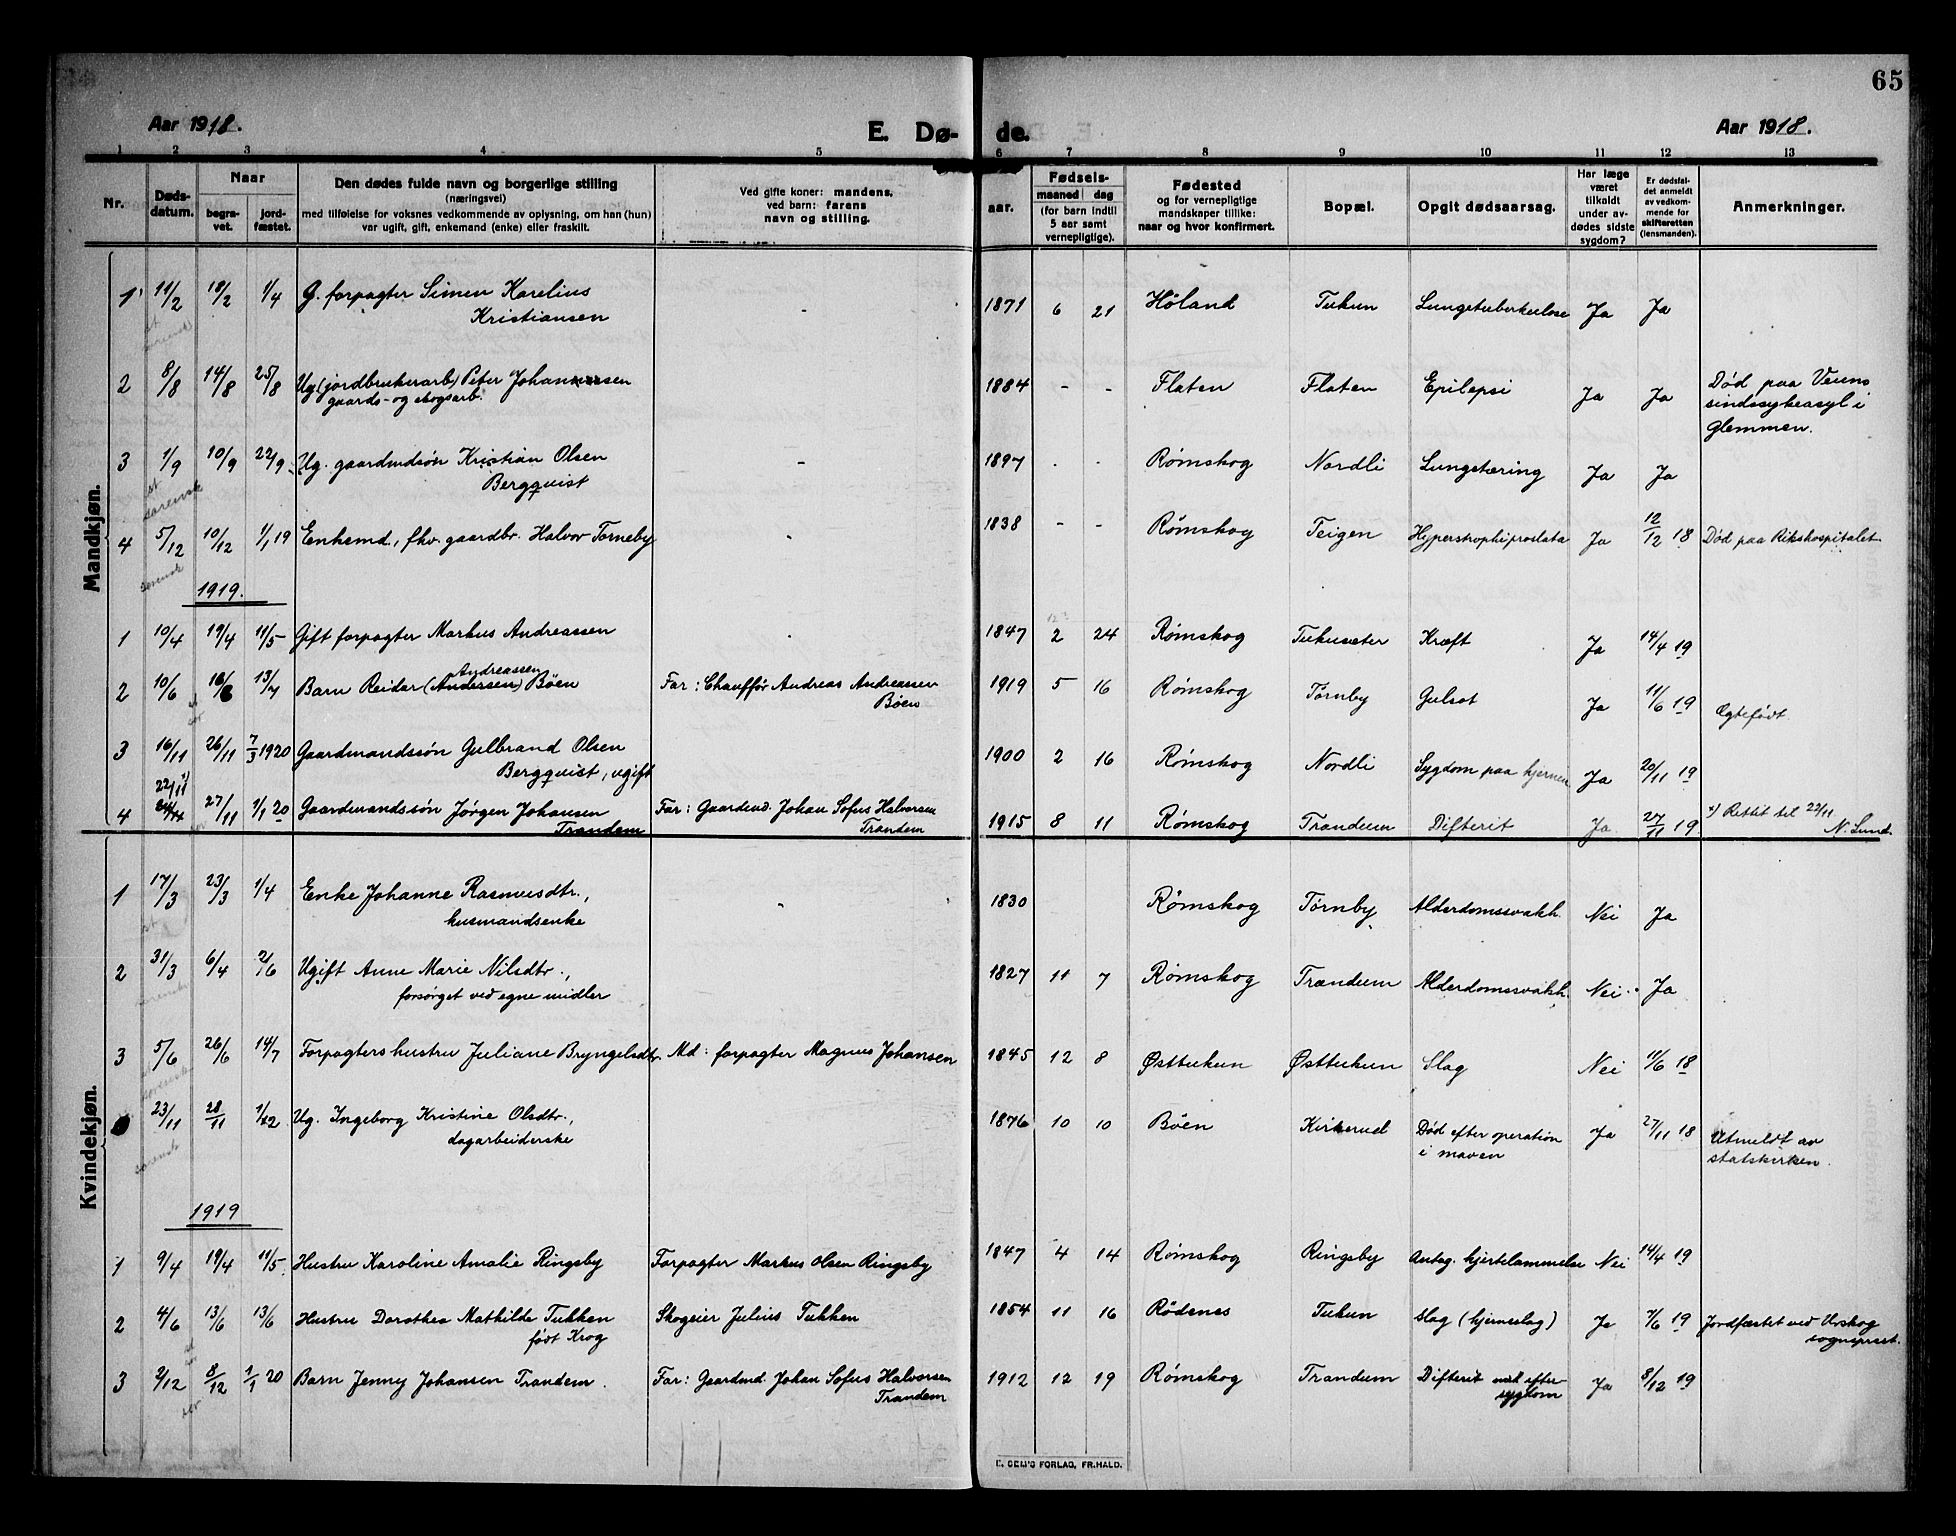 65
Aar 1918.
E. Dø-
de.
Aar 1918.
1 2 3 4 5 6 7 8 9 10 11 12 13
Nr.
Døds-
datum.
Naar
begra-
vet.
jord-
fæstet.
Den dødes fulde navn og borgerlige stilling
(næringsvei)
med tilføielse for voksnes vedkommende av oplysning, om han (hun)
var ugift, gift, enkemand (enke) eller fraskilt.
Ved gifte koner: mandens,
ved barn: farens
navn og stilling.
aar.
Fødsels-
maaned dag
(for barn indtil
5 aar samt
vernepligtige).
Fødested
og for vernepligtige
mandskaper tillike:
naar og hvor konfirmert.
Bopæl.
Opgit dødsaarsag.
Har læge
været
tilkaldt
under av-
dødes sidste
sygdom?
Er dødsfal-
det anmeldt
av vedkom-
mende for
skifteretten
(lensmanden).
Anmerkninger.
Mandkjøn.
1 11/2 18/2 1/4 G. forpagter Simen Karelius
Kristiansen
1871 6 21 Høland Tukun Lungetuberkulose Ja Ja
2 8/8 14/8 25/8 Ug (jordbrukerarb) Peter Johannessen
gaards- og skogsarb.
1884 - - Flaten Flaten Epilepsi Ja Ja Død paa Veums
sindssykeasyl i
Glemmen.
3 1/9 10/9 22/9 Ug. gaardmdsøn Kristian Olsen
Bergquist
- 1897 - - Rømskog Nordli Lungetæring Ja Ja
4 5/12 10/12 1/1 19 Enkemd., fhv. gaardbr. Halvor Torneby
1838 - - Rømskog Teigen Hyperstrophiprostata Ja 12/12 18 Død paa Rikshospitalet
1919.
1 10/4 19/4 11/5 Gift forpagter Markus Andreassen
1847 2 24 Rømskog Tukusæter Kræft Ja 14/4 19
Andreassen
2 10/6 16/6 13/7 Barn Reidar (Andersen) Böen Far: Chauffør Andreas Andreasen
Böen
1919 5 16 Rømskog Tørnby Gulsot Ja 11/6 19 Ægtefödt.
3 16/11 26/11 7/3 1920 Gaardmandssön Gulbrand Olsen
Bergquist, ugift
1900 2 16 Rømskog Nordli Sygdom paa hjernen Ja 20/11 19
22/11 x)
4 27/11 1/1 20 Gaardmandssön Jørgen Johansen
Trandem
Far: Gaardmd. Johan Sofus Halvorsen
Trandem
1915 8 11 Rømskog Trandum Difterit Ja 27/11 19 x) Rettet til 22/11
N. Lund.
Kvindekjøn.
1 17/3 23/3 1/4 Enke Johanne Rasmusdtr.,
husmandsenke
1830 Rømskog Törnby Alderdomssvakh. Nei Ja
2 31/3 6/4 2/6 Ugift Anne Marie Nilsdtr.,
forsørget ved egne midler
1827 11 7 Rømskog Trandum Alderdomssvakh. Nei Ja
3 5/6 26/6 14/7 Forpagters hustru Juliane Bryngelsdtr. Md: forpagter Magnus Johansen
1845 12 8 Østtukun Østtukun Slag Nei 11/6 18
23/11 28/11 1/12 Ug. Ingeborg Kristine Olsdtr.,
dagarbeiderske
1876 10 10 Böen Kirkerud Död efter operation
i maven
Ja 27/11 18 Utmeldt av
statskirken.
1919
1 9/4 19/4 11/5 Hustru Karoline Amalie Ringsby Forpagter Markus Olsen Ringsby
1847 4 14 Rømskog Ringsby Antag. hjertelammelse Nei 14/4 19
2 4/6 13/6 13/6 Hustru Dorothea Mathilde Tukken
født Krog
Skogeier Julius Tukken
1854 11 16 Rødenes Tukun Slag (hjerneslag) Ja 7/6 19 Jordfæstet ved Urskog
sogneprest.
3 2/12 8/12 1/1 20 Barn Jenny Johansen Trandem. Far: Gaardmd. Johan Sofus Halvorsen
Trandem
1912 12 19 Rømskog Trandum Difterit med efter-
sygdom
Ja 8/12 19
E. SEM'S FORLAG, FR.HALD.